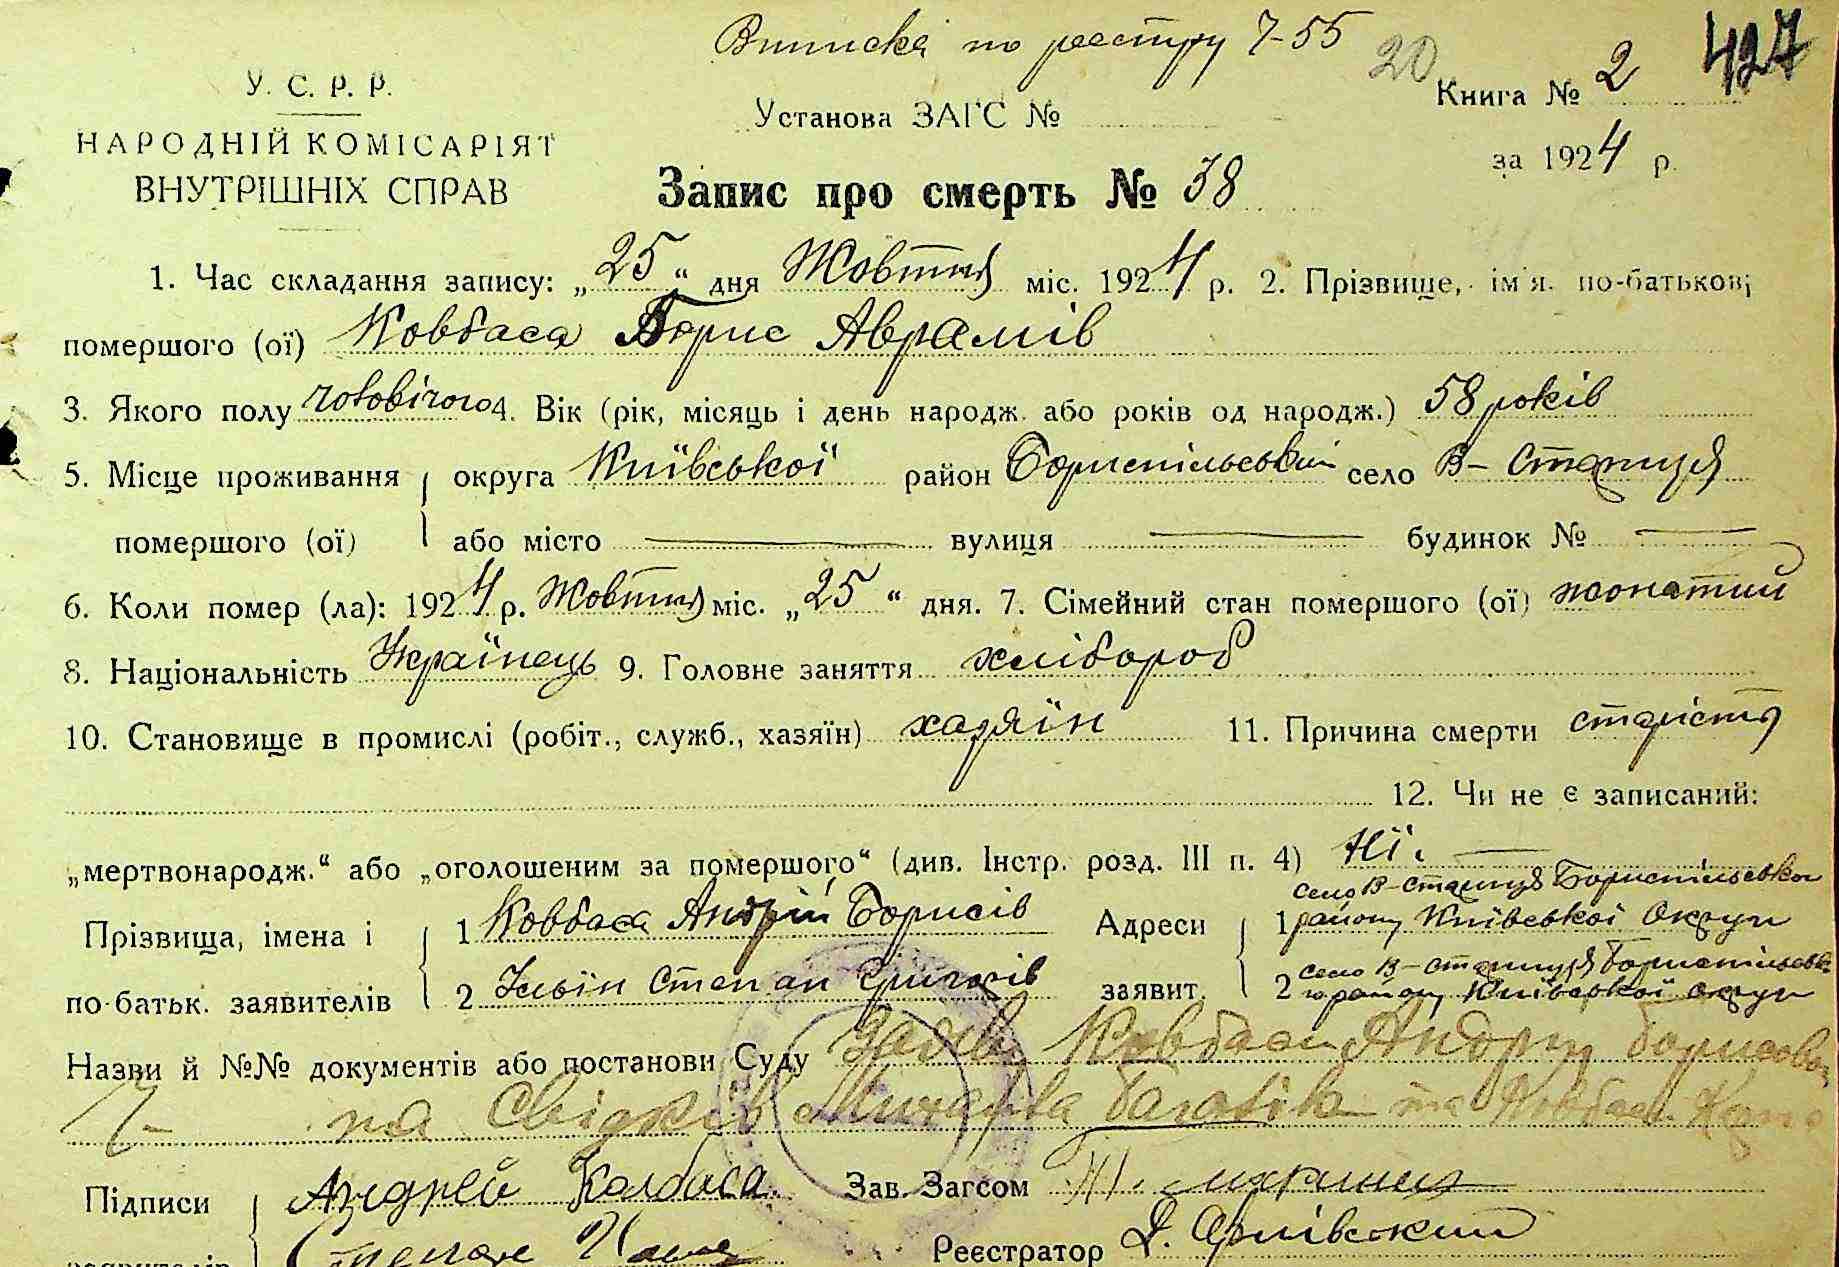 Виписка по реєстру 7-55
20
427
У. С. Р. Р.
Книга № 2
Установа ЗАГС №
НАРОДНІЙ КОМІСАРІЯТ
за 1924 р.
ВНУТРІШНІХ СПРАВ
Запис про смерть № 38
1. Час складання запису: „25“ дня Жовтня міс. 1924 р. 2. Прізвище, ім'я. по-батькові
помершого (ої) Ковбаса Борис Аврамів
3. Якого полу чоловічого 4. Вік (рік, місяць і день народж. або років од народж.) 58 років
5. Місце проживання округа Київської район Бориспільський село В-Стариця
помершого (ої) або місто — вулиця — будинок № —
6. Коли помер (ла): 1924 р. Жовтня міс. „25“ дня. 7. Сімейний стан помершого (ої) жонатий
8. Національність Українець 9. Головне заняття хлібороб
10. Становище в промислі (робіт., служб., хазяїн) хазяїн 11. Причина смерти старість
12. Чи не є записаний:
„мертвонародж.“ або „оголошеним за помершого“ (див. Інстр. розд. III п. 4) Ні. —
село В-Стариця Бориспільського
Прізвища, імена і 1 Ковбаса Андрій Борисів Адреси 1 району Київської Округи
село В-Стариця Бориспільсько
по-батьк. заявителів 2 Ільїн Степан Григорів заявит. 2 го району Київської округи
Назви й №№ документів або постанови Суду Ковбаси Андрія Борисова
та Свідків та Ковбаса
Підписи Андрей Колбаса. Зав. Загсом
заявителів Степан Реєстратор